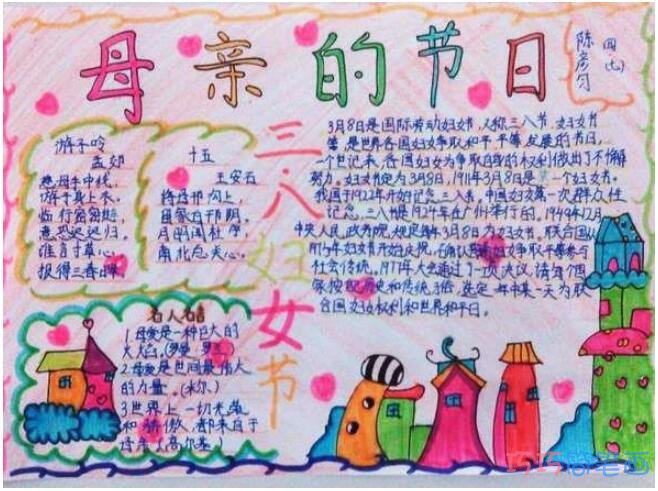 母亲的节日
陈彦匀
四(七)
游子吟
孟郊
慈母手中线,
游子身上衣。
临行密密缝,
意恐迟迟归。
谁言寸草心,
报得三春晖。
十五
王安石
将母邗沟上,
留家白邗阴。
月明闻杜宇,
南北总关心。
三·八妇女节
3月8日是国际劳动妇女节,又称三八节,妇女节
等,是世界各国妇女争取和平、平等、发展的节日,
一个世纪来,各国妇女为争取自身的权利做出了不懈
努力。妇女节定为3月8日,1911年3月8日是第一个妇女节。
我国于1922年开始纪念三八节。中国妇女第一次群众性
纪念三八节是1924年在广州举行的。1949年12月
中央人民政务院规定每年3月8日为妇女节。联合国从
1975年妇女节开始庆祝,
争取平等参与
社会传统。1977年大会通过了一项决议,请每个国
家按照历史和传统习俗,选定一年中某一天为联
合国妇女权利和世界和平日。
名人名言
1.母爱是一种巨大的
火焰。(罗曼·罗兰)
2.母爱是世间最伟大
的力量。(米尔)
3.世界上一切光荣
和骄傲,都来自于
母亲。(高尔基)
巧巧简笔画